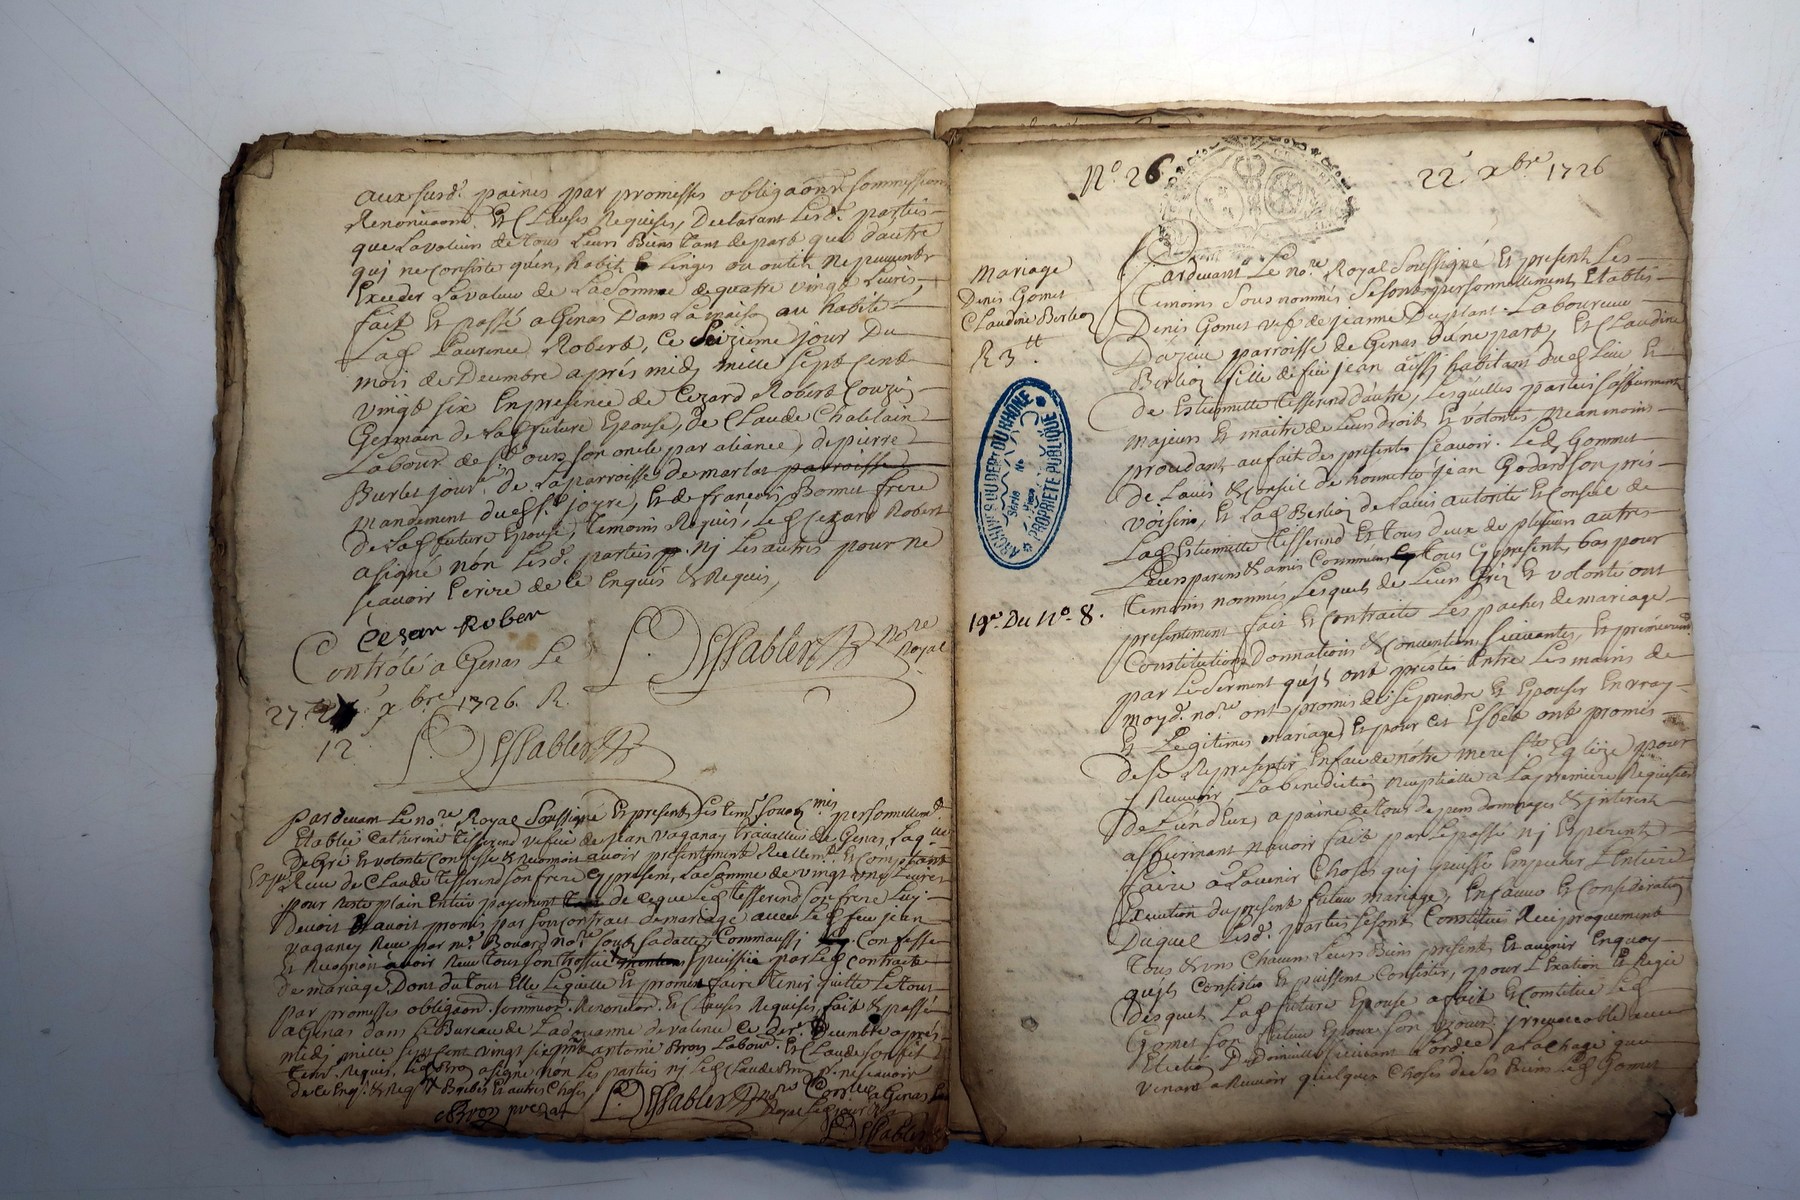 aux susd. paines par promesses obligaons sommissions
Renonciaons Et Clauses Requises, Declarant Lesd. parties
que La valeur de tous Leurs Biens tant de part que d'autre
qui ne Consiste qu'en habits & Linges ou outils ne peuvent
Exceder La valeur de La somme de quatre vingt Livres,
fait Et passé a Genas Dans La maison au habite
Lad Laurence Robert, Ce seizieme jour Du
mois de Decembre aprés midy mille sept cent
vingt six En presence de Cezard Robert Couzin
Germain de Lad future Epouse, de Claude Chatelain
Labour de son oncle par aliance, de pierre
Burlet jour. de La parroisse de marlat parroisse
mandement dud joyre, Et de françois Bonnet frere
de Lad future Epouse, temoins Requis, Led Cezard Robert
a signé nón Lesd. parties ny Les autres pour ne
sçavoir Ecrire de ce Enquis & Requis,
Cesar Rober
Contrólé a Genas Le
27. xbre 1726. R.
12
Dessablerd nore Royal
Dessablerd
par devant Le nore Royal Soussigné Et presents Les tem. sousnmis personnellem.
Etablie Catherine Tisserend vefve de jean vaganay travailleur de Genas, Laq.
de Gré Et volonté Confesse & Reconoit avoir presentement Reellemt. Et Comptant
Receu de Claude Tisserend son frere cy present, La somme de vingt une Livres
pour Reste plain Entier payement de ce que Led Tisserend son frere Luy
devoit & avoit promis par son contract de mariage avec Led feu jean
vaganey Receu par me. Bouard nore. sous sa datte, Comm'aussy Confesse
Et Reconoit avoir Receu tout son trossel par Led Contract
de mariage Dont du tout Elle Le quitte Et promet faire tenir quitte Le tout
par promesses obligaons. sommissions. Renonciaon. & Clauses Requises, fait & passé
a Genas dans Le Bureau de La doüanne de valence Ce Decembre aprés
midy mille sept cent vingt six antoine Bron Labour. Et Claude son fils
tem. Requis, Led Bron a signé nón Les parties ny Led Claude Bron p. ne sçavoir
de ce Enq. & Req.
Bron present
Dessablerd nore Royal
Dessablerd
No. 26
22e xbre 1726
mariage
Denis Gomet
Claudine Berlion
R 3tt
ARCHIVES DU DEPT DU RHÔNE
Série
PROPRIETE PUBLIQUE
19e. Du No. 8.
Pardevant Le nore. Royal Soussigné Et present Les
Temoins Sous nommés Se sont personnellement Etablis
Denis Gomet vef. de jeanne Duplant. Laboureur
D'azieu parroisse de Genas d'une part, Et Claudine
Berlion fille de feu jean aussy habitant dud Lieu Et
de Estiennette Tisserend d'autre, Lesquelles parties s'affirment
majeurs Et maitre de Leurs droits Et volontés, neanmoins
procedant au fait des presentes sçavoir. Led Gommet
de L'avis & Conseil de honnette jean Godard son prés
voisins, Et Lad Berlion de L'avis autorité Et Conseil de
Lad Estiennette Tisserend Et tous deux de plusieurs autres
Leurs parens & amis Communs tous cy presents, bas pour
temoins nommés, Lesquels de Leur Gréz Et volonté ont
presentement fait Et Contracté Les paches de mariage
Constitutions Donnations & Convention suivantes, Et premierement
par Le Serment qu'jls ont prestés Entre Les mains de
moyd. nore. ont promis de se prendre Et Epouser En vray
Et Legitimes mariage, Et pour cet Effet ont promis
de se Representer En face de nótre mere ste. Eglize pour
y Recevoir La benediction nuptialle a La premiere Requisition
de L'un d'Eux, a paine de tous depens dommages & interest
affirmant n'avoir fait par Le passé ny Esperent
faire a L'avenir Choses qui puisse Empecher L'Entiere
Execution du present futur mariage, En faveur Et Consideration
Duquel Lesd. parties se sont Constitués Reciproquement
tous & uns Chacuns Leurs Biens presents Et avenir En quoy
qu'jls Consistes Et puissent Consister, pour L'Exation Et Regie
desquels Lad future Epouse a fait & Constitué Led
Gomet son futur Epoux son procur. irrevocable avec
Election De Domicille suivant L'ordce. a La charge que
venant a Recevoir quelques Choses de Ses Biens Led Gomet